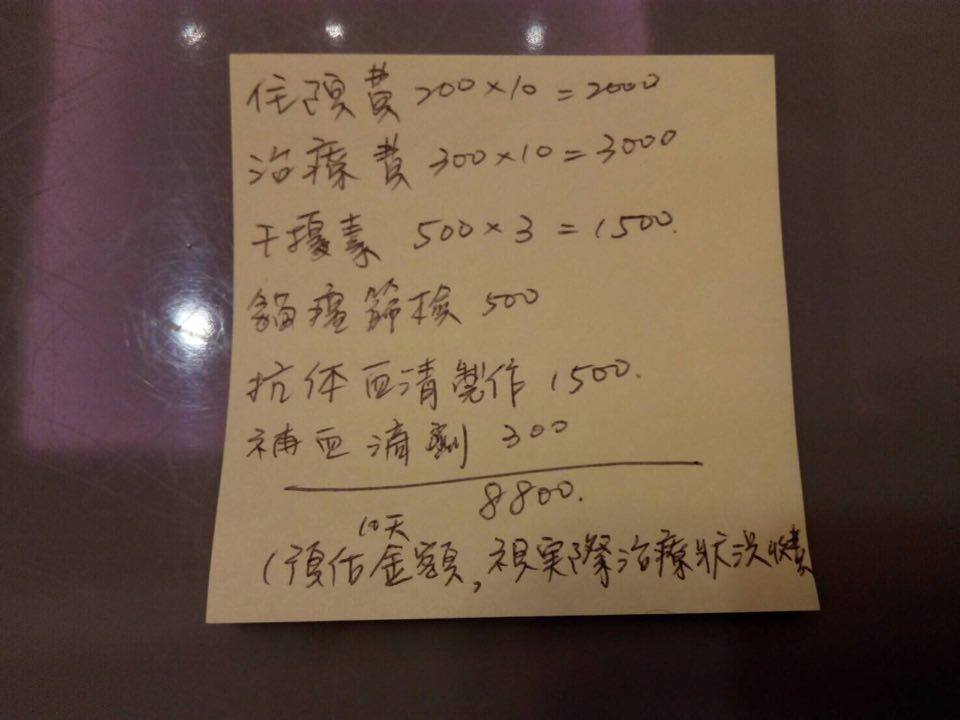 住院費 200×10=2000
治療費 300×10=3000
干擾素 500×3=1500.
貓瘟篩檢 500
抗体血清製作 1500.
補血滴劑 300
8800.
10天
(預估金額,視実際治療狀況收費